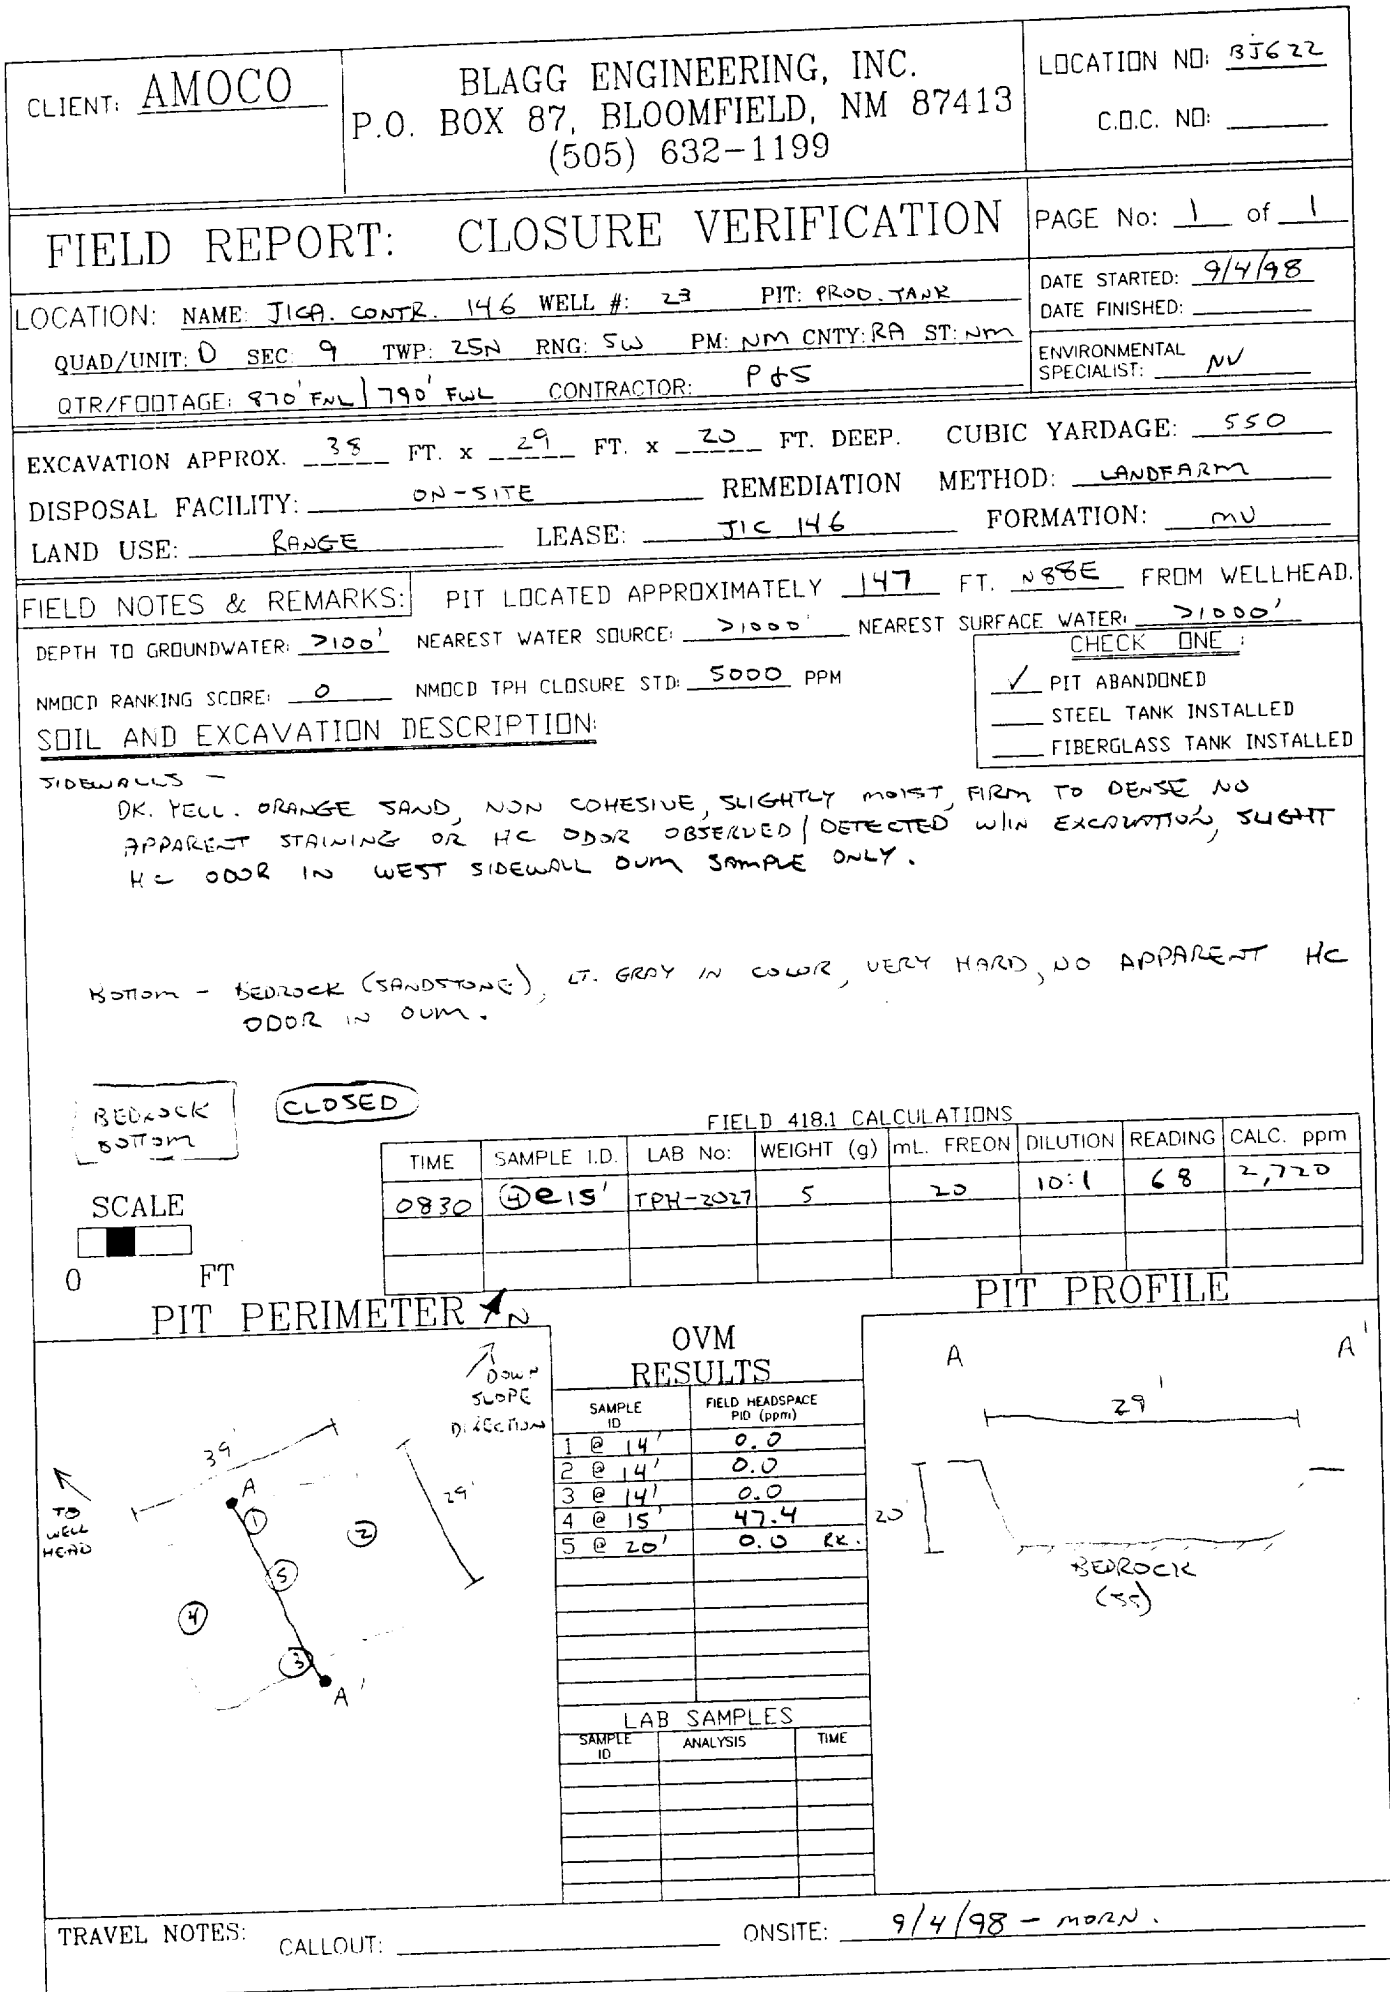 CLIENT: AMOCO
BLAGG ENGINEERING, INC.
P.O. BOX 87, BLOOMFIELD, NM 87413
(505) 632-1199
LOCATION NO: BJ622
C.O.C. NO:
FIELD REPORT: CLOSURE VERIFICATION
PAGE No: 1 of 1
LOCATION: NAME: JICA. CONTR. 146 WELL #: 23 PIT: PROD. TANK
QUAD/UNIT: D SEC: 9 TWP: 25N RNG: 5W PM: NM CNTY: RA ST: NM
QTR/FOOTAGE: 870' FNL / 790' FWL CONTRACTOR: P&S
DATE STARTED: 9/4/98
DATE FINISHED:
ENVIRONMENTAL
SPECIALIST: NV
EXCAVATION APPROX. 38 FT. x 29 FT. x 20 FT. DEEP. CUBIC YARDAGE: 550
DISPOSAL FACILITY: ON-SITE REMEDIATION METHOD: LANDFARM
LAND USE: RANGE LEASE: JIC 146 FORMATION: MV
FIELD NOTES & REMARKS: PIT LOCATED APPROXIMATELY 147 FT. N88E FROM WELLHEAD.
DEPTH TO GROUNDWATER: >100' NEAREST WATER SOURCE: >1000' NEAREST SURFACE WATER: >1000'
NMOCD RANKING SCORE: 0 NMOCD TPH CLOSURE STD: 5000 PPM
CHECK ONE :
✓ PIT ABANDONED
STEEL TANK INSTALLED
FIBERGLASS TANK INSTALLED
SOIL AND EXCAVATION DESCRIPTION:
SIDEWALLS -
DK. YELL. ORANGE SAND, NON COHESIVE, SLIGHTLY MOIST, FIRM TO DENSE NO
APPARENT STAINING OR HC ODOR OBSERVED / DETECTED W/IN EXCAVATION, SLIGHT
HC ODOR IN WEST SIDEWALL OVM SAMPLE ONLY.
BOTTOM - BEDROCK (SANDSTONE), LT. GRAY IN COLOR, VERY HARD, NO APPARENT HC
ODOR IN OVM.
BEDROCK
BOTTOM
CLOSED
FIELD 418.1 CALCULATIONS
TIME SAMPLE I.D. LAB No: WEIGHT (g) mL. FREON DILUTION READING CALC. ppm
0830 ④@15' TPH-2027 5 20 10:1 68 2,720
SCALE
0 FT
PIT PERIMETER N
DOWN
SLOPE
DIRECTION
39'
29'
TO
WELL
HEAD
A
①
②
⑤
④
③
A'
OVM
RESULTS
SAMPLE ID FIELD HEADSPACE PID (ppm)
1 @ 14' 0.0
2 @ 14' 0.0
3 @ 14' 0.0
4 @ 15' 47.4
5 @ 20' 0.0 RK.
LAB SAMPLES
SAMPLE ID ANALYSIS TIME
PIT PROFILE
A A'
29'
20'
BEDROCK
(SS)
TRAVEL NOTES: CALLOUT: ONSITE: 9/4/98 - MORN.